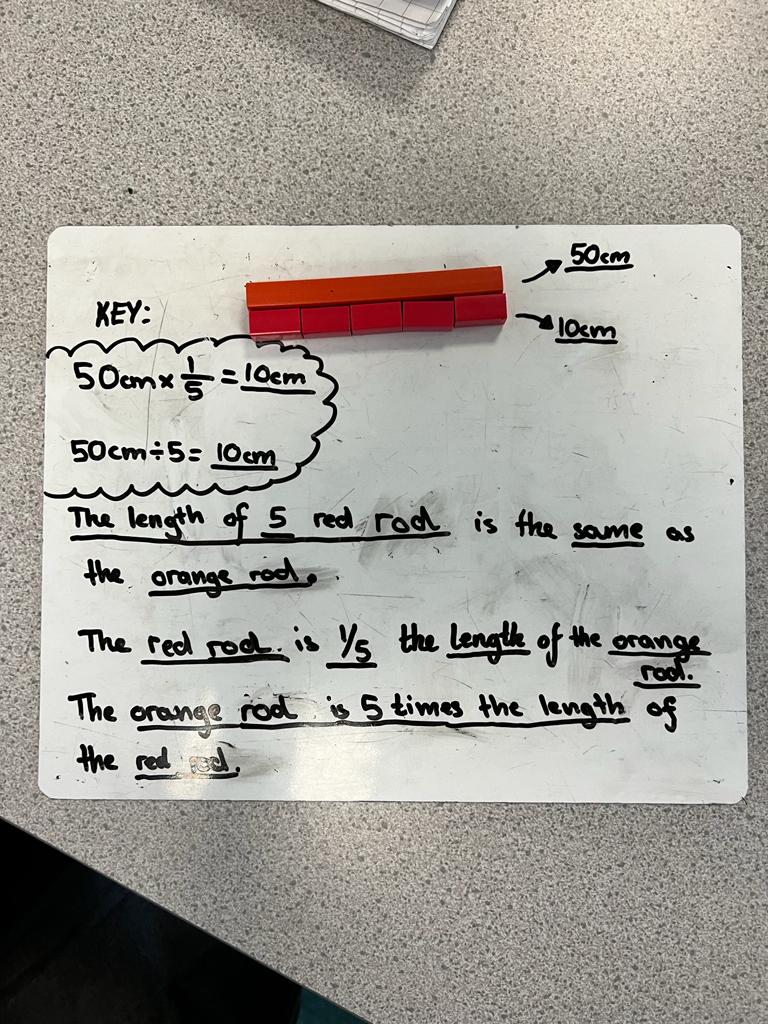 50cm
KEY:
10cm
50cm × 1/5 = 10cm
50cm ÷ 5 = 10cm
The length of 5 red rod is the same as
the orange rod.
The red rod. is 1/5 the length of the orange
rod.
The orange rod is 5 times the length of
the red rod.